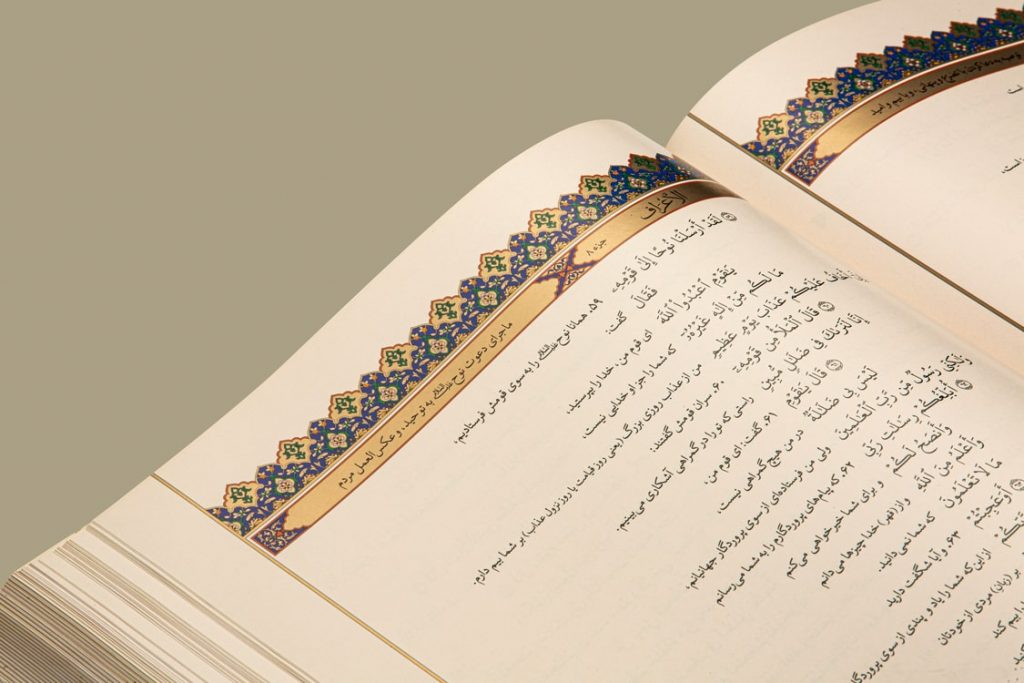 توصیه به دعا کردن با تضرّع و پنهانی، و با بیم و امید
است
الأعراف
جزء ۸
ماجرای دعوت نوح علیه‌السلام به توحید، و عکس‌العمل مردم
لَقَدْ أَرْسَلْنَا نُوحًا إِلَىٰ قَوْمِهِۦ ۵۹. همانا نوح علیه‌السلام را به سوی قومش فرستادیم،
فَقَالَ گفت:
يَٰقَوْمِ ٱعْبُدُوا۟ ٱللَّهَ ای قوم من، خدا را بپرستید،
مَا لَكُم مِّنْ إِلَٰهٍ غَيْرُهُۥٓ که شما را جز او خدایی نیست،
عَلَيْكُمْ عَذَابَ يَوْمٍ عَظِيمٍ من از عذاب روزی بزرگ (یعنی روز قیامت یا روز نزول عذاب) بر شما بیم دارم.
قَالَ ٱلْمَلَأُ مِن قَوْمِهِۦٓ ۶۰. سران قومش گفتند:
إِنَّا لَنَرَىٰكَ فِى ضَلَٰلٍ مُّبِينٍ راستی که تو را در گمراهی آشکاری می‌بینیم.
قَالَ يَٰقَوْمِ ۶۱. گفت: ای قوم من،
لَيْسَ بِى ضَلَٰلَةٌ در من هیچ گمراهی نیست،
وَلَٰكِنِّى رَسُولٌ مِّن رَّبِّ ٱلْعَٰلَمِينَ ولی من فرستاده‌ای از سوی پروردگار جهانیانم،
أُبَلِّغُكُمْ رِسَٰلَٰتِ رَبِّى ۶۲. که پیام‌های پروردگارم را به شما می‌رسانم
وَأَنصَحُ لَكُمْ و برای شما خیرخواهی می‌کنم
وَأَعْلَمُ مِنَ ٱللَّهِ و از (قهر) خدا چیزها می‌دانم
مَا لَا تَعْلَمُونَ که شما نمی‌دانید.
أَوَعَجِبْتُمْ ۶۳. و آیا شگفت دارید
از این که شما را یاد و پندی از سوی پروردگا
بر (زبان) مردی از خودتان
را بیم کند